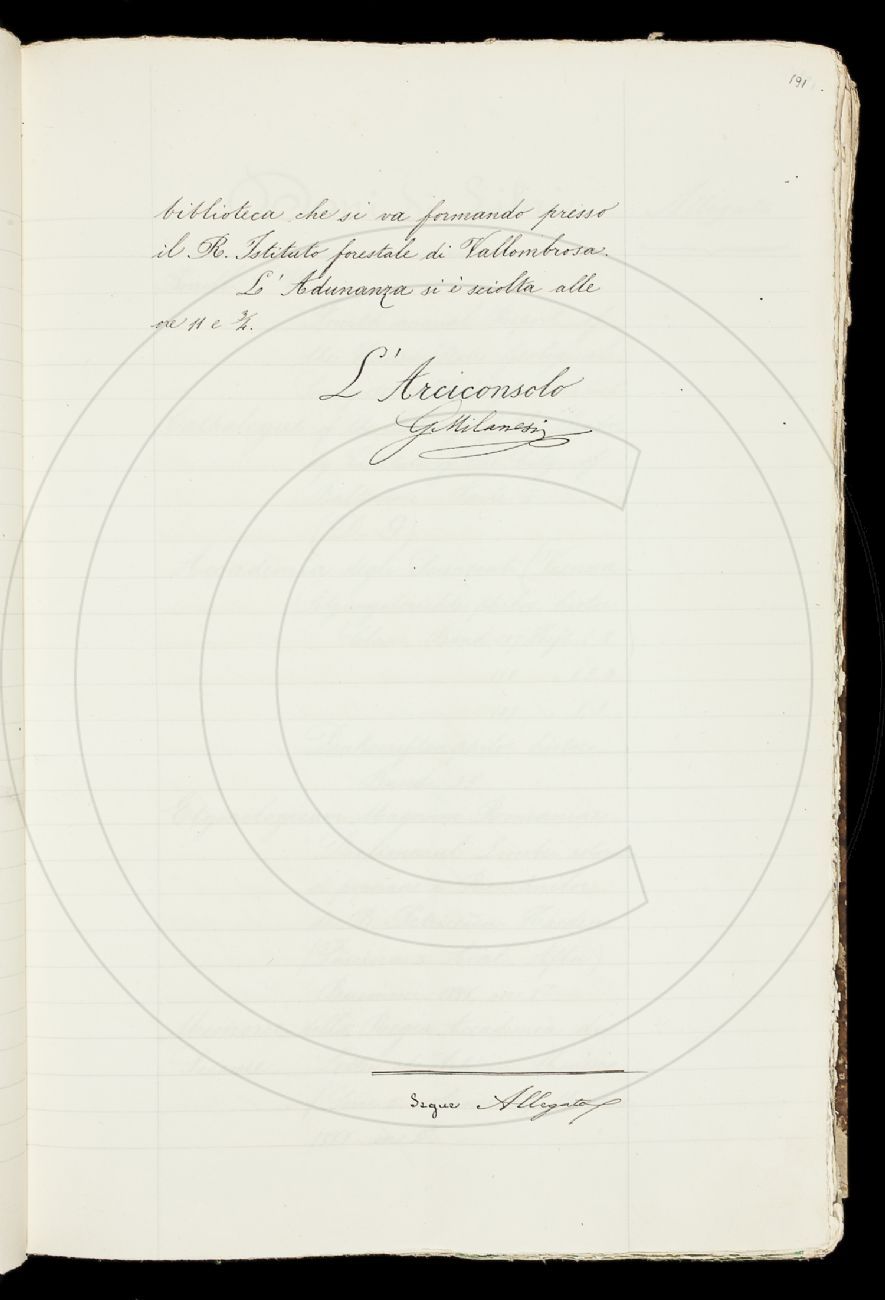 191
biblioteca che si va formando presso
il R. Istituto forestale di Vallombrosa.
L' Adunanza si è sciolta alle
ore 11 e 3/4.
L' Arciconsolo
G Milanesi
Segue Allegato